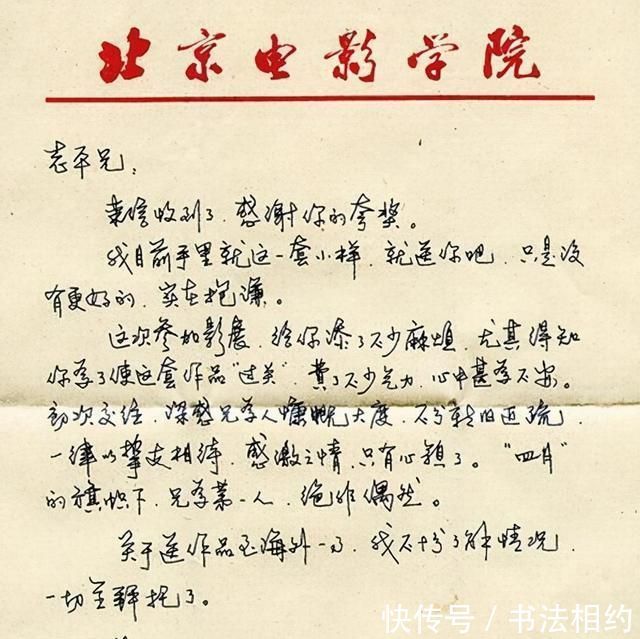 北京电影学院
志平兄：
来信收到了、感谢你的夸奖。
我目前手里就这一套小样，就送你吧，只是没
有更好的，实在抱谦。
这次参加影展，给你添了不少麻烦，尤其得知
你为了使这套作品“过关”，费了不少气力，心中甚为不安。
初次交往，深感兄为人慷慨大度，不分新旧近疏，
一律以挚友相待，感激之情，只有心领了。“四月”
的旗帜下，兄为第一人，绝非偶然。
关于送作品至海外一事，我不十分了解情况，
一切全拜托了。
快传号／书法相约